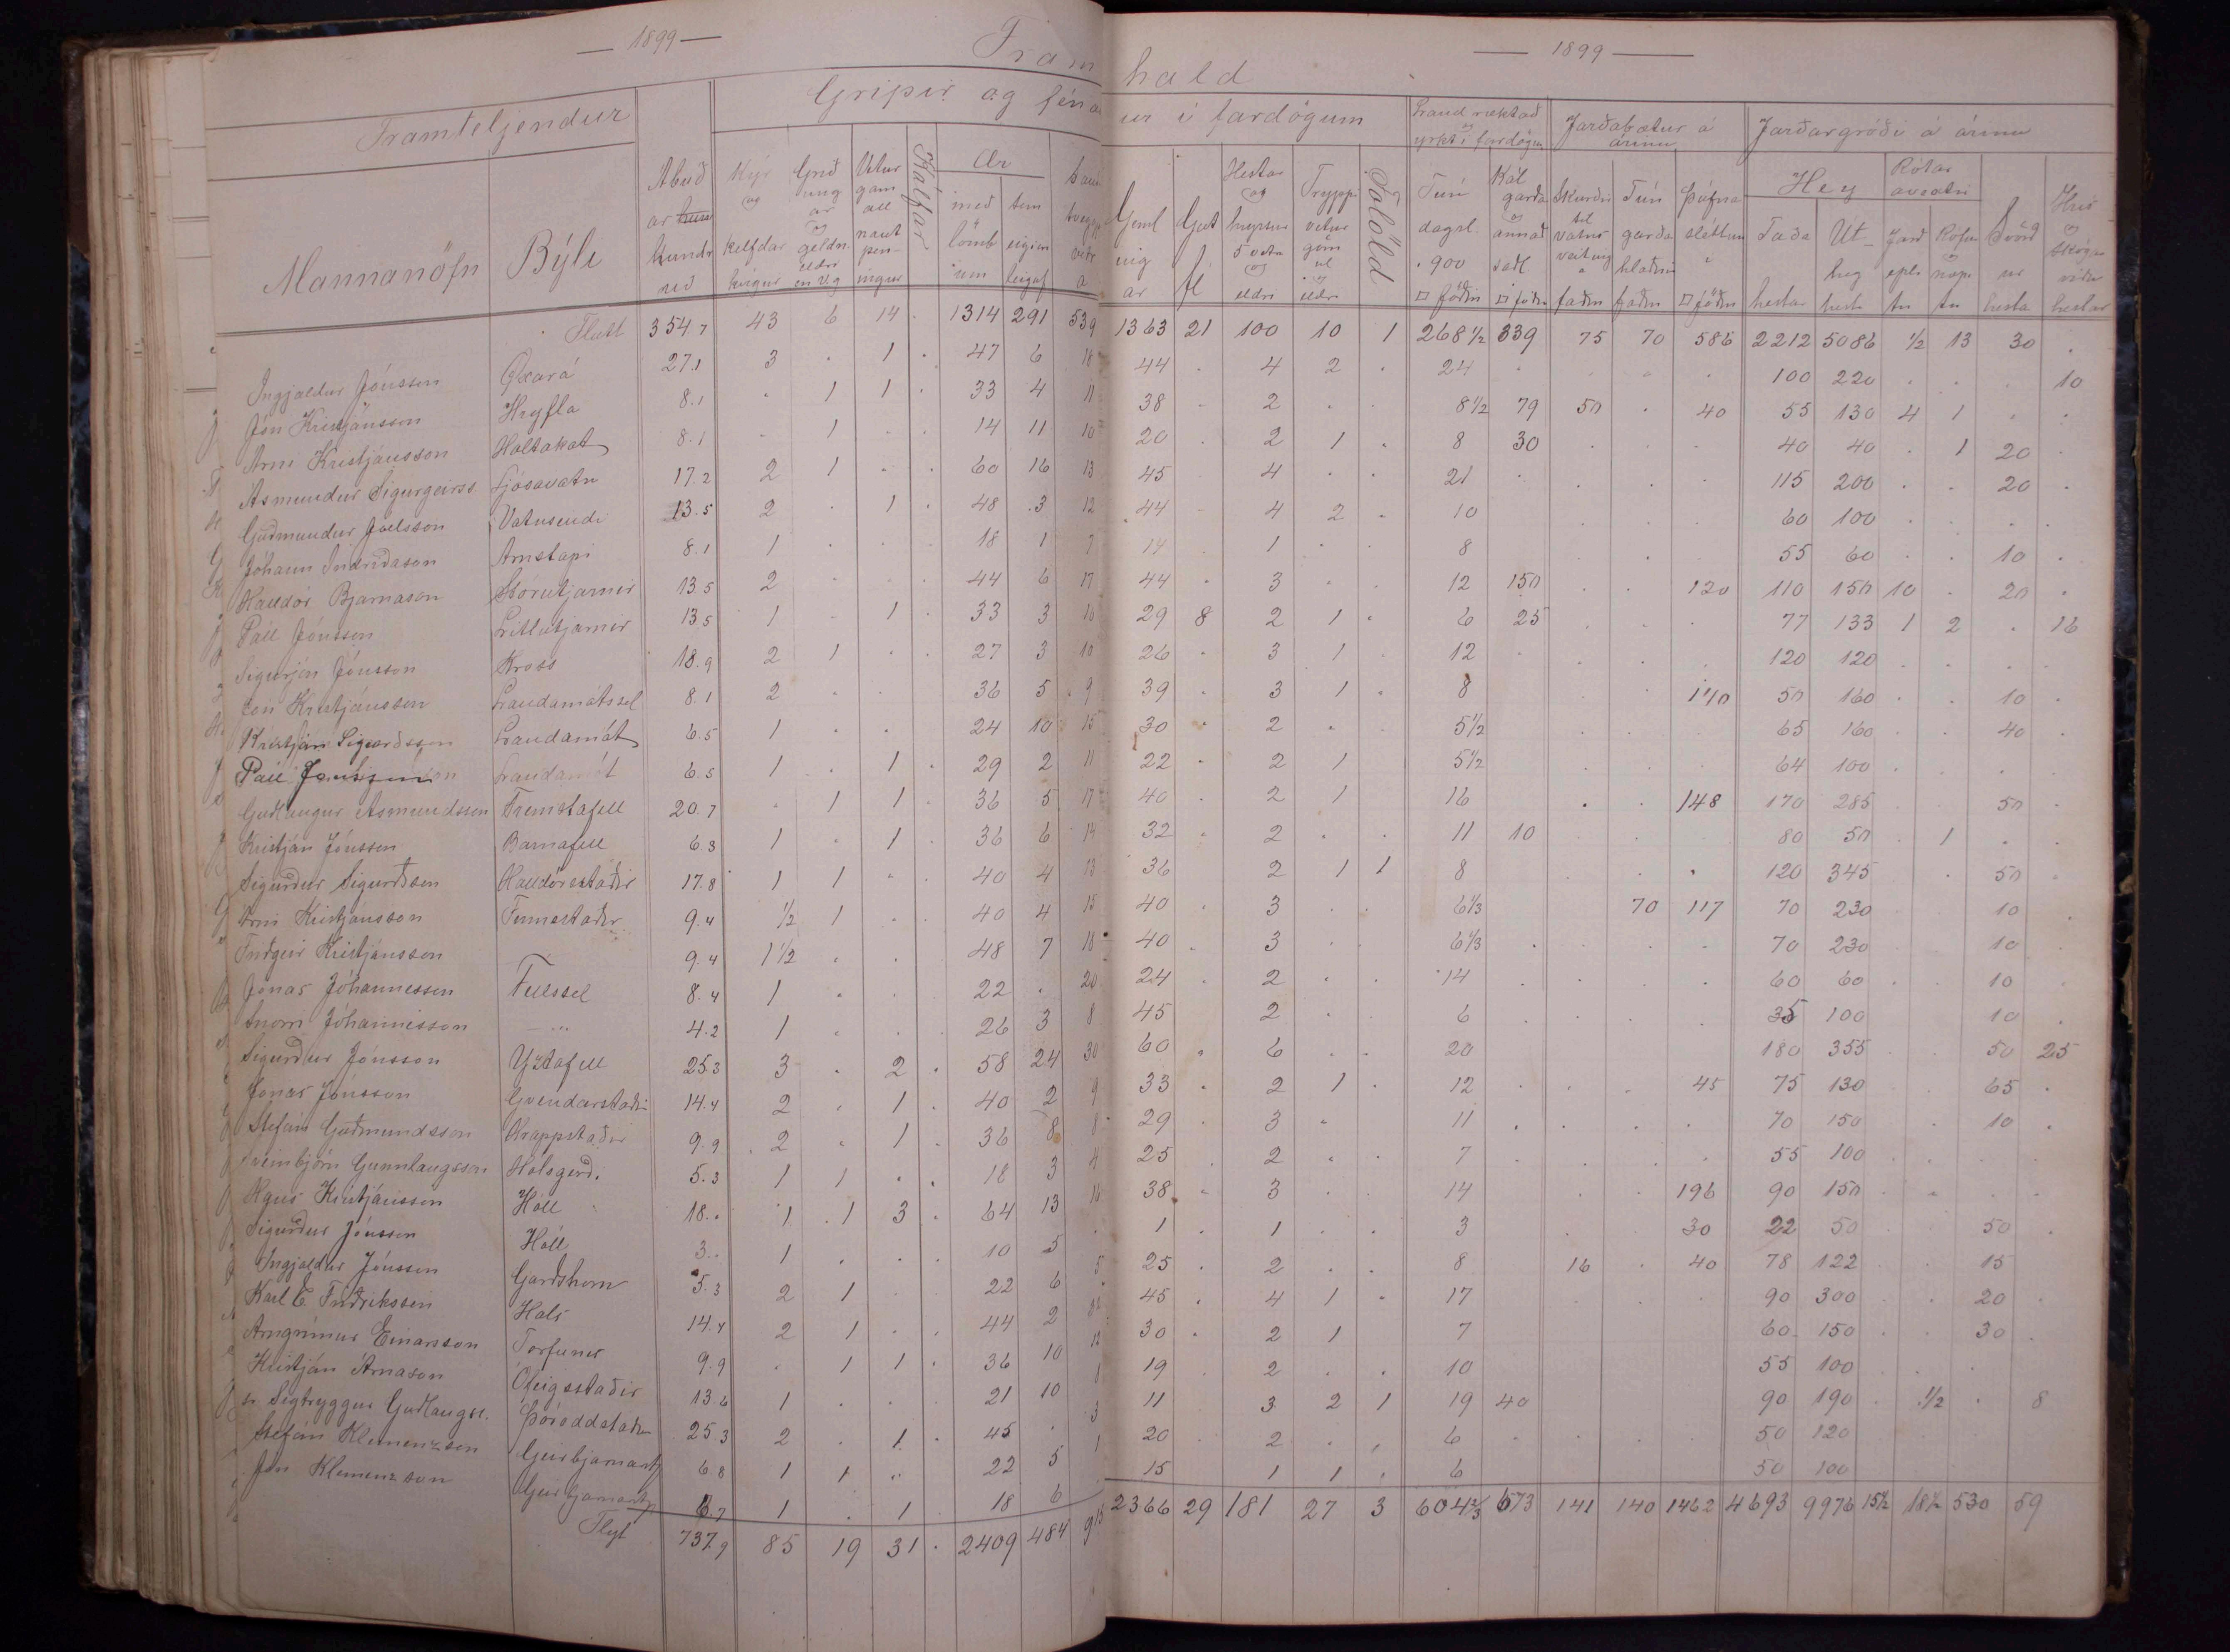 — 1899 — — 1899 —
Fram hald
Framteljendur Gripir og fénaður í fardögum Land ræktað og yrkt í fardögum Jarðabætur á árinu Jarðargróði á árinu
Mannanöfn Býli Ábúðar hundruð Kýr og kelfdar kvígur Grið ung ar og geldn. eldri en v.g Vetur gam all naut pen- ingur Kálfar Ær með lömb um tvævetr a Geml ing ar Hestar og hryssur 5 vetra og eldri Tryppi vetur göm ul og eldri Folöld Tún dagsl. 900 □ föðm Kál garða og annað sáðl. □ föðm Skurðir til vatns veiting a faðm Tún garða hlaðnir faðm Þúfna sléttun □ föðm Hey Taða hestar Út- hey hest Rótar ávextir Jarð epli tn Rófur næpr tn Svörð ur hesta Hrís og Skógar viður hestar
Flutt 354 7 43 6 14 . 1314 291 539 1363 21 100 10 1 268 1/2 339 75 70 586 2212 5086 1/2 13 30 .
Ingjaldur Jónsson Öxará 27.1 3 . 1 . 47 6 18 44 . 4 2 . 24 . . . . 100 220 . . . 10
Jón Kristjánsson Hryfla 8.1 . 1 1 . 33 4 11 38 . 2 . . 8 1/2 79 50 . 40 55 130 4 1 . .
Árni Kristjánsson Holtakot 8.1 . 1 . . 14 11 10 20 . 2 1 . 8 30 . . . 40 40 . 1 20 .
Ásmundur Sigurgeirss Ljósavatn 17.2 2 1 . . 60 16 13 45 4 . . 21 . . . . 115 200 . . 20 .
Guðmundur Jóelsson Vatnsendi 13.5 2 . 1 . 48 3 12 44 . 4 2 . 10 . . . 60 100 . . . .
Jóhann Indriðason Arnstapi 8.1 1 . . . 18 1 7 14 . 1 . . 8 . . 55 60 . . 10 .
Halldór Bjarnason Stórutjarnir 13.5 2 . . . 44 6 17 44 . 3 . . 12 150 . . 120 110 150 10 . 20 .
Páll Jónsson Litlutjarnir 13.5 1 . 1 . 33 3 16 29 8 2 1 . 6 25 . . . 77 133 1 2 . 16
Sigurjón Jónsson Kross 18.9 2 1 . . 27 3 10 26 . 3 1 . 12 . . . . 120 120 . . . .
Jón Kristjánsson Landamótssel 8.1 2 . . 36 5 9 39 . 3 1 . 8 . . 140 50 160 . . 10 .
Kristján Sigurðsson Landamót 6.5 1 . . 24 10 15 30 . 2 . 5 1/2 . . . 65 160 . . 40 .
Páll Jónsson Landamót 6.5 1 . 1 . 29 2 11 22 . 2 1 5 1/2 . . 64 100 . . . .
Guðlaugur Ásmundsson Fremstafell 20.7 . 1 1 . 36 5 17 40 . 2 1 16 . . 148 170 285 . 50 .
Kristján Jónsson Barnafell 6.3 1 . 1 . 36 6 14 32 . 2 . . 11 10 . . 80 50 . 1 . .
Sigurður Sigurðsson Halldórsstaðir 17.8 1 1 . . 40 4 13 36 2 1 1 8 . . . 120 345 . 50 .
Árni Kristjánsson Finnsstaðir 9.4 1/2 1 . . 40 4 15 40 . 3 . . 6 1/3 70 117 70 230 . 10 .
Friðgeir Kristjánsson 9.4 1 1/2 . . 48 7 18 40 . 3 . . 6 1/3 . . . . 70 230 . 10 .
Jónas Jóhannesson Fellssel 8.4 1 . . 22 . 20 24 . 2 . . 14 . . . . 60 60 . . 10 .
Snorri Jóhannesson — " 4.2 1 . . . 26 3 8 45 2 . . 6 . . . . 35 100 10 .
Sigurður Jónsson Yztafell 25.3 3 . 2 . 58 24 30 60 . 6 . . 20 180 355 . . 50 25
Jónas Jónsson Gvendarstaðir 14.4 2 . 1 . 40 2 9 33 . 2 1 . 12 . . . 45 75 130 . . 65 .
Stefán Guðmundsson Hrappstaðir 9.9 2 . 1 . 36 8 8 29 . 3 . 11 . . . . 70 150 . 10 .
Sveinbjörn Gunnlaugsson Holsgerði 5.3 1 1 . . 18 3 4 25 . 2 . . 7 . . . . 55 100 . . . .
Kristjánsson Hóll 18.. 1 1 3 . 64 13 16 38 . 3 . . 14 . . 196 90 150 . . . .
Sigurður Jónsson Hóll 3.. 1 . . . 10 5 . 1 . 1 . . 3 . . 30 22 50 . . 50 .
Ingjaldur Jónsson Garðshorn 5.3 2 1 . 22 6 5 25 . 2 . . 8 16 . 40 78 122 . . 15
Karl E. Friðriksson Hals 14.4 2 1 . . 44 2 45 . 4 1 . 17 . . . 90 300 . . 20 .
Arngrímur Einarsson Torfunes 9.9 . 1 1 . 36 10 12 30 . 2 1 7 60 150 . . 30 .
Kristján Árnason Ófeigsstaðir 13.6 1 . . . 21 10 1 19 2 . . 10 55 100 . .
sr Sigtryggur Guðlaugss. Þóroddstaðr 25.3 2 . 1 . 45 . 3 11 3 2 1 19 40 90 190 . 1/2 . 8
Stefán Klemenzson Geirbjarnarst 6.8 1 1 . 22 5 1 20 . 2 . . 6 . . . . 50 120
Jón Klemenzson Geirbjarnarst 6.7 1 . 1 . 18 6 . 15 1 1 . 6 50 100
Flyt 737.9 85 19 31 . 2409 484 915 2366 29 181 27 3 604 2/3 673 141 140 1462 4693 9976 15 1/2 18 1/2 530 59